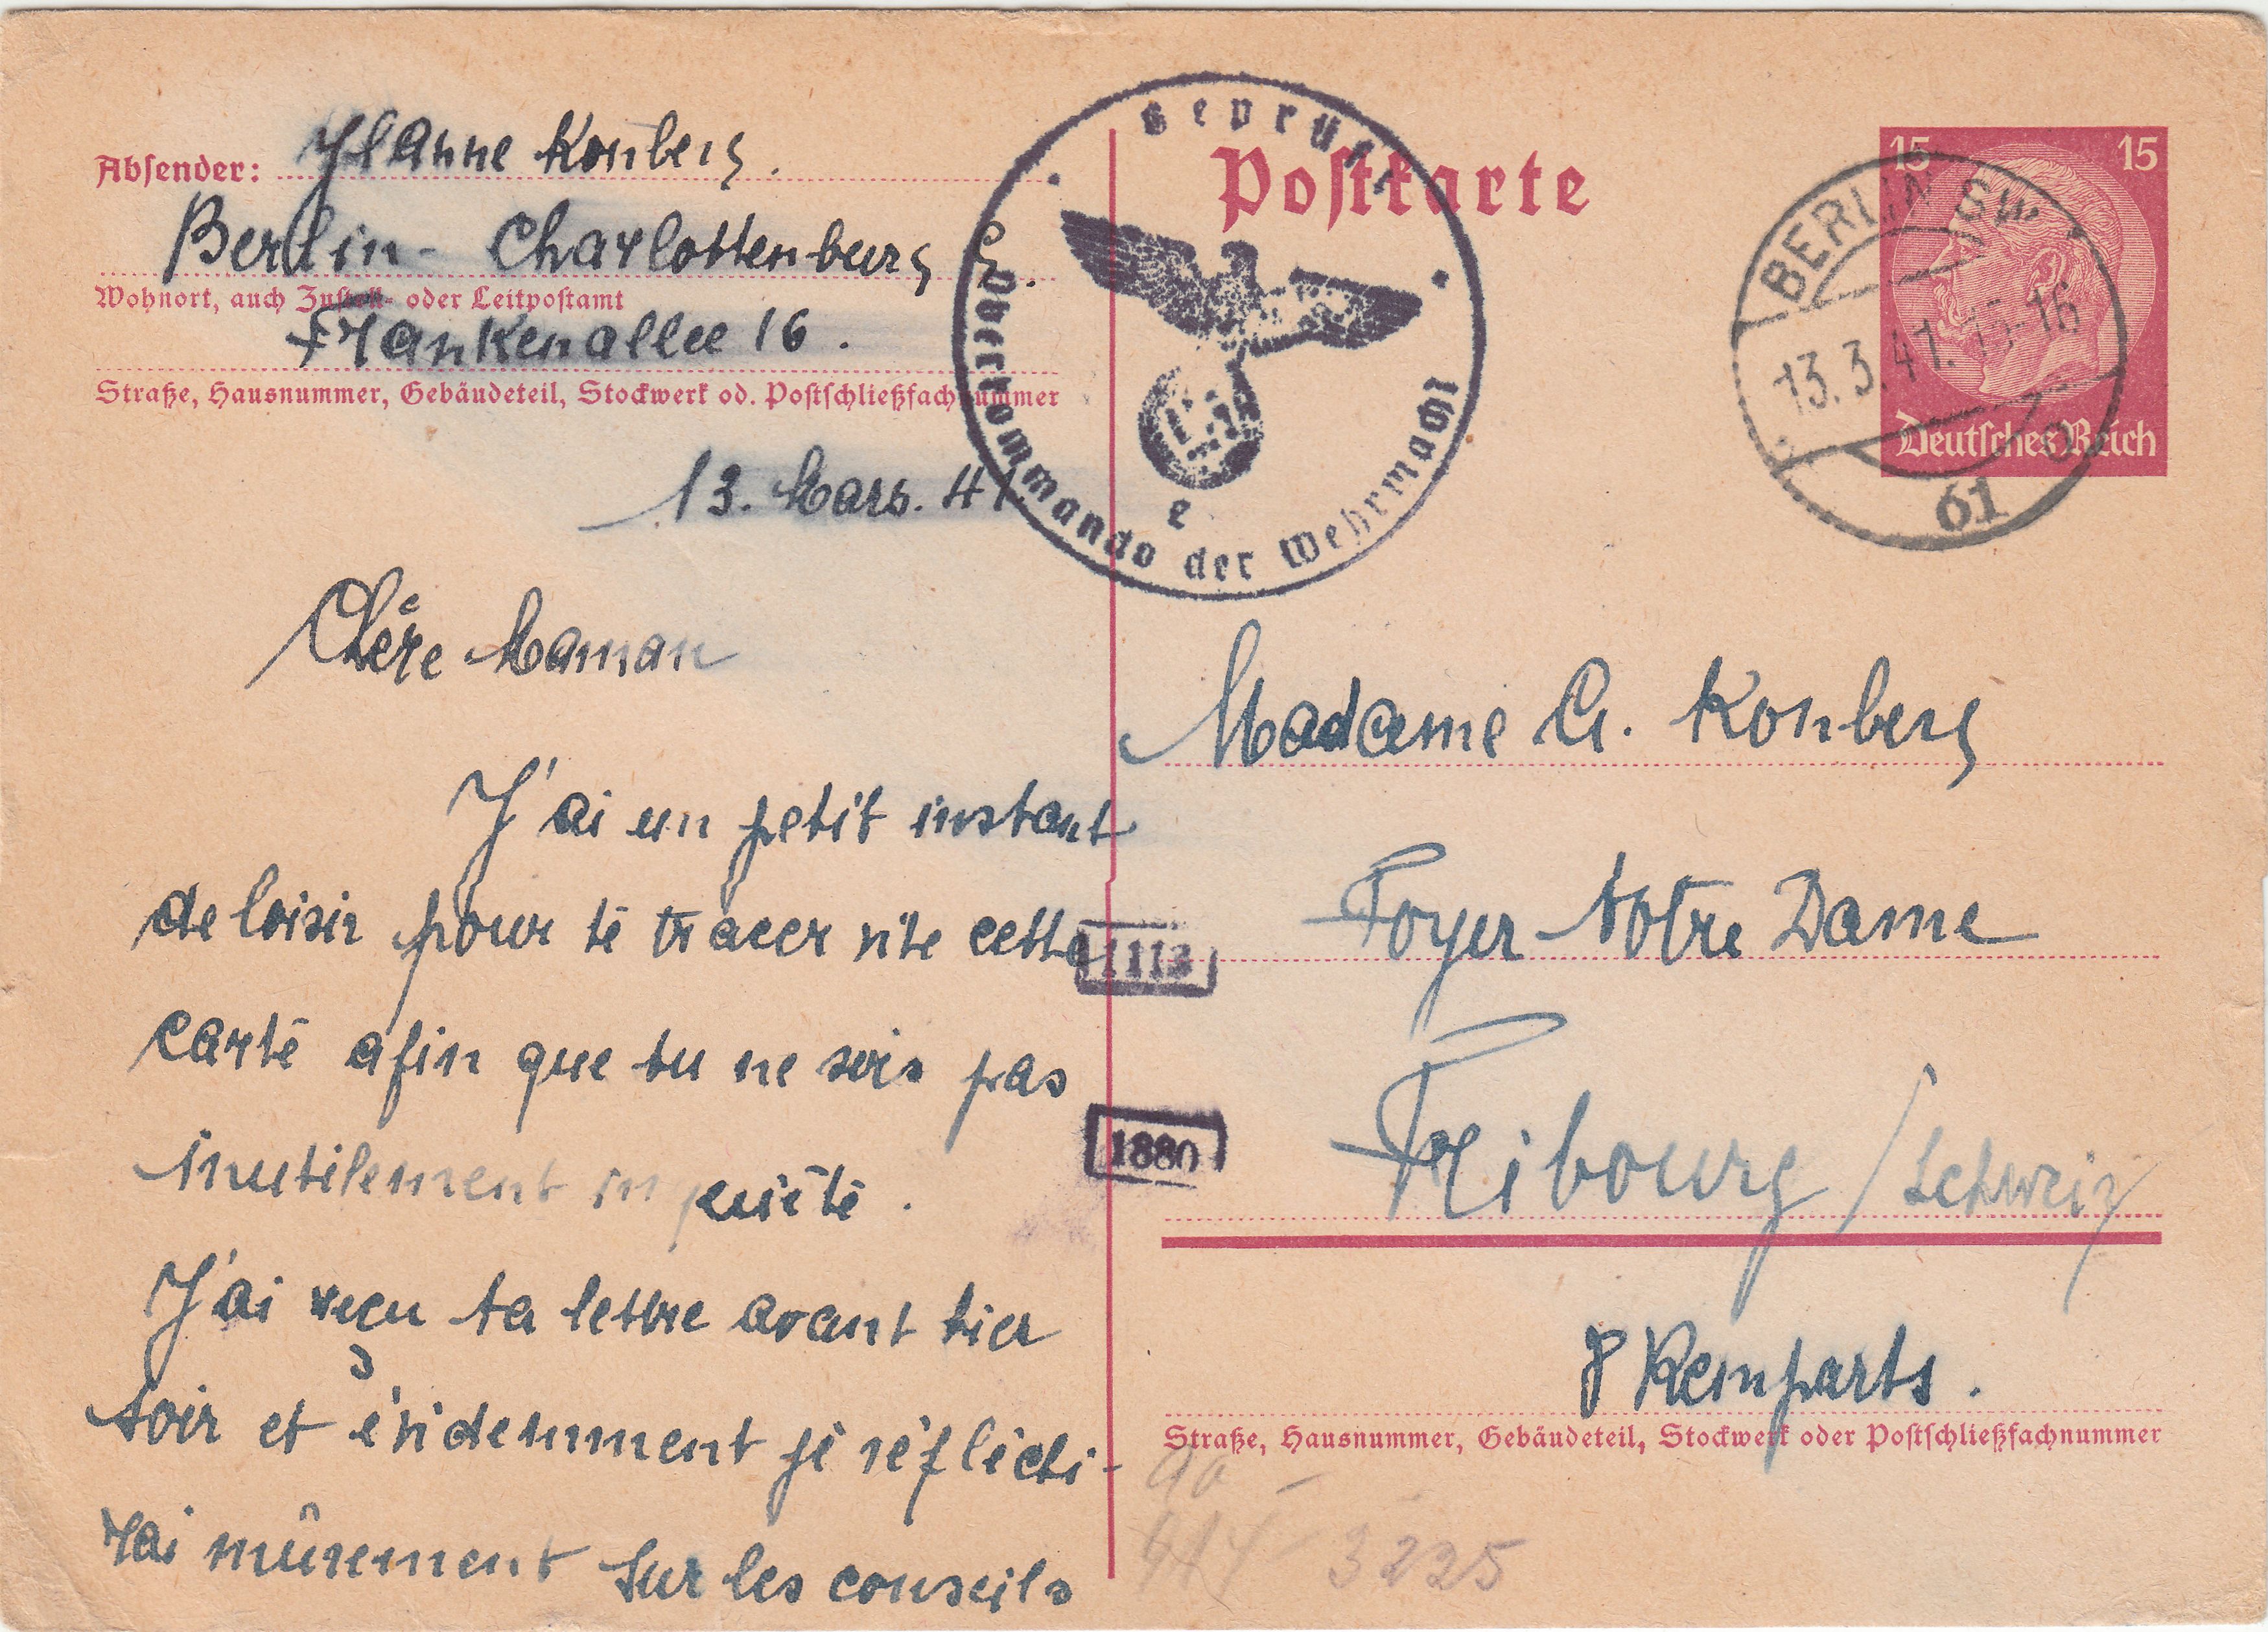 Absender: Yvanne Konberg.
Berlin - Charlottenburg 9.
Wohnort, auch Zustell- oder Leitpostamt
Frankenallee 16.
Straße, Hausnummer, Gebäudeteil, Stockwerk od. Postschließfachnummer
13. Mars. 41
Chère Maman
J'ai un petit instant
de loisir pour te tracer vite cette
carte afin que tu ne sois pas
inutilement inquiète.
J'ai reçu ta lettre avant hier
soir et évidemment je réfléchi-
rai mûrement sur les conseils
Geprüft
Oberkommando der Wehrmacht
e
Postkarte
15 15
Deutsches Reich
BERLIN SW
13.3.41.15-16
o
61
Madame G. Konberg
Foyer Notre Dame
1113
Fribourg / Schweiz
1880
8 Remparts.
Straße, Hausnummer, Gebäudeteil, Stockwerk oder Postschließfachnummer
3225